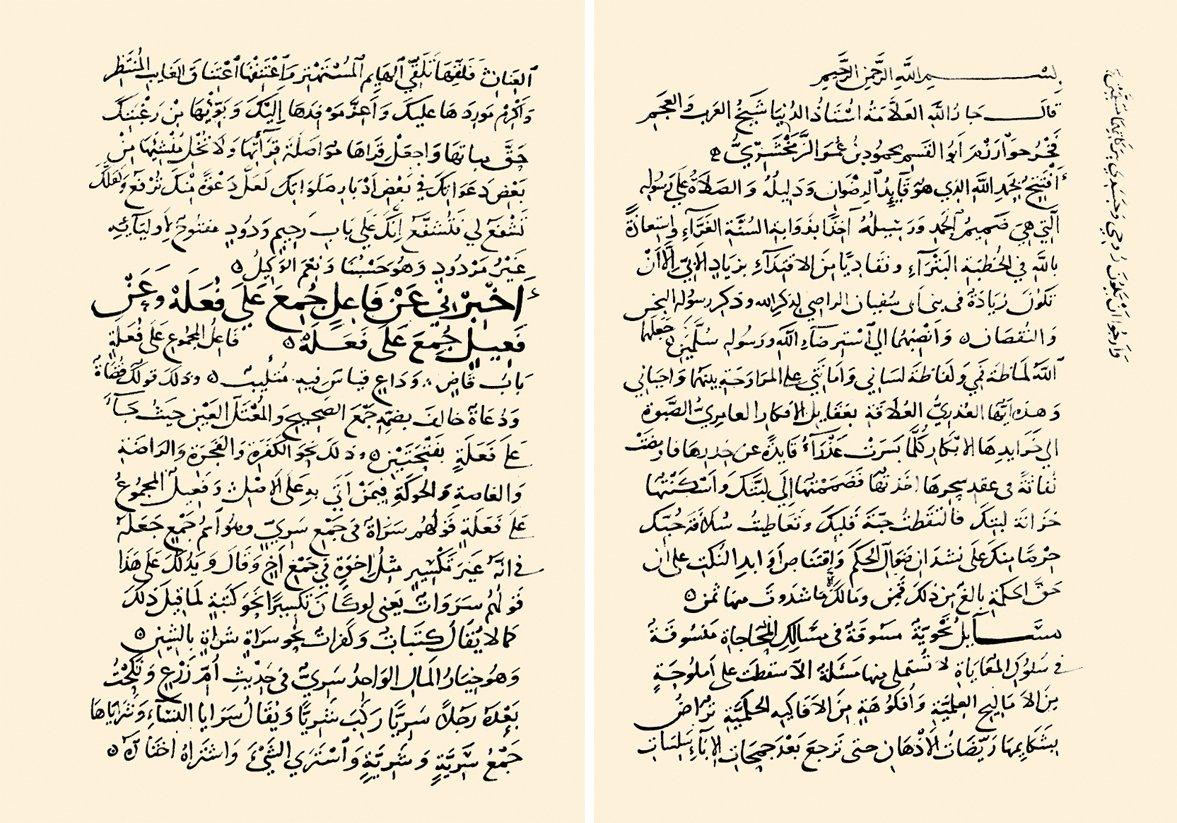 بسم الله الرحمن الرحيم
قال جار الله العلامة استاد الدنيا شيخ العرب والعجم
فخر خوارزم ابو القسم محمود بن عمر الزمخشري
أفتتح بحمد الله الذي هو قايد الرضوان ودليله والصلاة على رسوله
التي هي ضميم الحمد ورسيله آخذا بذوابة السنة الغراء واستعانة
بالله في الخطبة البتراء وتفاديا من الاقتداء بزياد الابي الا ان
تكون زيادة في بني ابي سفيان الراضي لذكر الله وذكر رسوله البخس
والنقصان وانصبهما الى استرضاء الله ورسوله سلمين جعلهما
الله لماظة فمي ولفاظة لساني واماتني على المراوحة بينهما واحياني
وهذه ايتها العذري العلاقة بعقايل الافكار العامري الصبوة
الى خرايدها الابكار كلما
في عقد سحرها فضممتها الى لبتك واسكنتها
خزانة لبك فالتقطت حبة قلبك وتعاطيت سلافة حبك
حرصا منك على نشدان ضوال الحكم واقتناص اوابد النكت على ان
حق الحكمة بالغ من ذلك قمن ومالك ما شدوت منها ثمن
مسايل نحوية مسوقة في مسالك المحاجاة منسوقة
في سلوك المعاياة لا تستملي منها مسئلة الا سقطت على املوحة
من الاماليح العلمية وافكوهة من الافاكيه الحكمية تراض
بشكايمها ريضات الاذهان حتى ترجع بعد جمحات الاباء سلسات
العنان فتلقها تلقي الهايم المستهتر واغتنمها اغتنام الغايب المنتظر
واكرم موردها عليك واعز موفدها اليك وبوئها من رغبتك
حق مباتها واجعل قراها مواصلة قرآتها ولا تخل منشيها من
بعض دعواتك في بعض ادبار صلواتك لعل دعوة منك ترفع ولعلك
تشفع لي فتشفع انك على باب رحيم ودود مفتوح لاوليآئه
غير مردود وهو حسبنا ونعم الوكيل
أخبرني عن فاعل جمع على فعلة وعن
فعيل جمع على فعلة فاعل المجموع على فعلة
باب قاض وداع قياس فيه متليب وذلك قولك قضاة
ودعاة خالف بضمه جمع الصحيح والمعتل العين حيث جاآ
على فعلة بفتحتين وذلك نحو الكفرة والفجرة والراضة
والغاصة والحوكة فيمن اتى به على الاصل وفعيل المجموع
على فعلة قولهم سراة في جمع سري وهو اسم جمع جعله
في انه غير تكسير مثل اخوة في جمع اخ وقال ويدلك على هذا
قولهم سروات يعني لو كان تكسيرا نحو كتبة لما قيل ذلك
كما لا يقال كتبات وكفرات نحو سراة شراة بالشين
وهو خيار المال الواحد سري في حديث ام زرع ونكحت
بعده رجلا سريا ركب شريا ويقال سرايا النساء وشراياها
جمع سرية وشرية واستري الشيء واشتراه اختاره